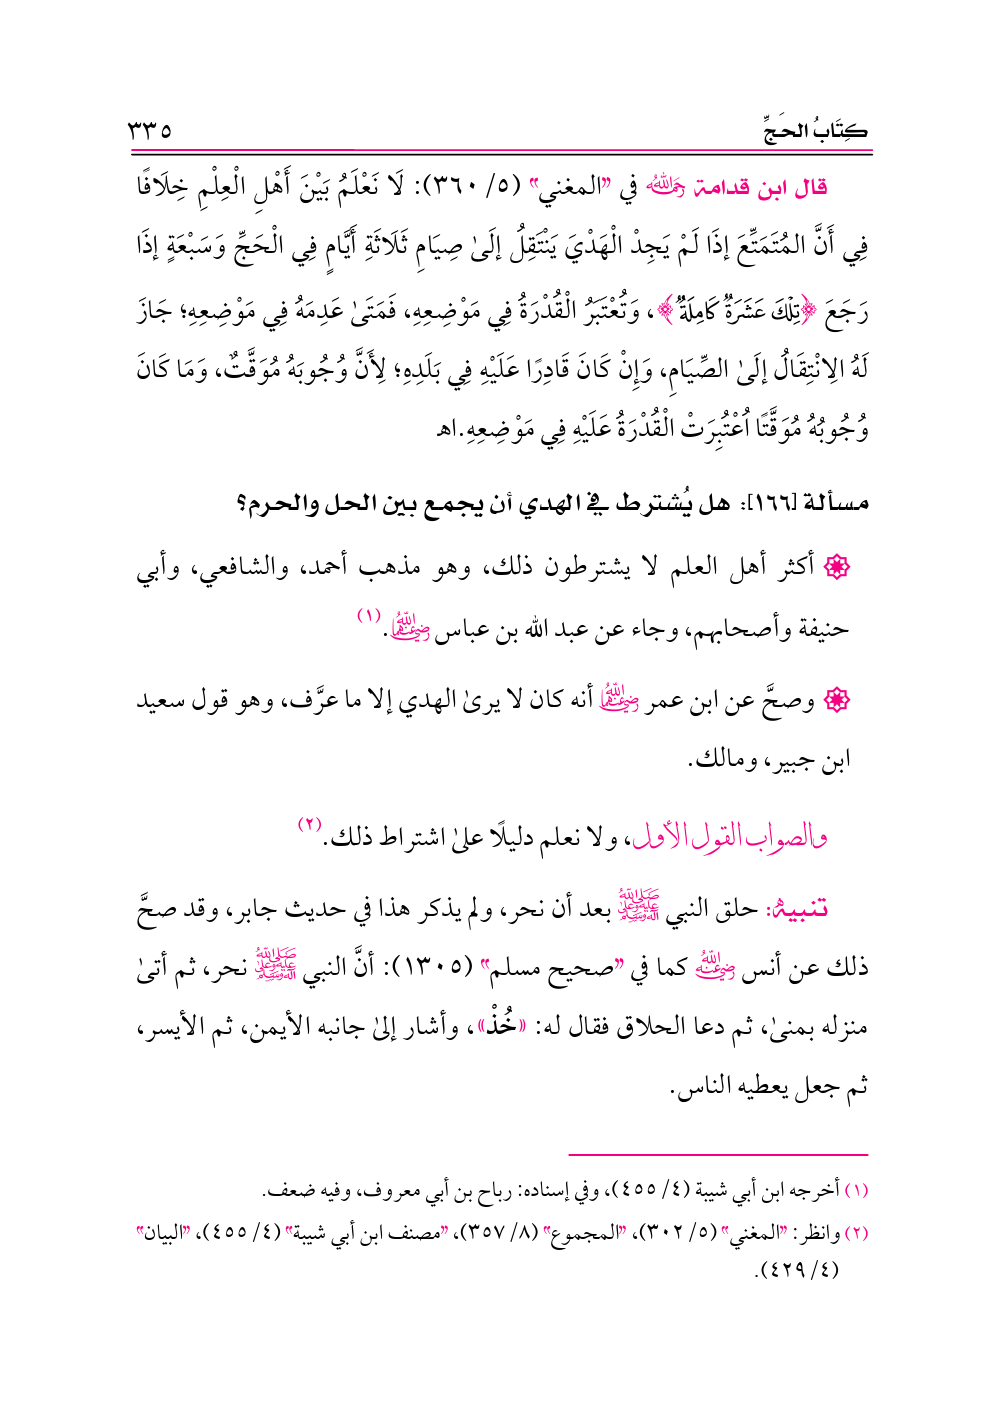 كِتَابُ الحَجِّ ٣٣٥
قال ابن قدامة رحمه الله في "المغني" (٥/ ٣٦٠): لَا نَعْلَمُ بَيْنَ أَهْلِ الْعِلْمِ خِلَافًا
فِي أَنَّ المُتَمَتِّعَ إذَا لَمْ يَجِدْ الْهَدْيَ يَنْتَقِلُ إلَىٰ صِيَامِ ثَلَاثَةِ أَيَّامٍ فِي الْحَجِّ وَسَبْعَةٍ إذَا
رَجَعَ ﴿تِلْكَ عَشَرَةٌ كَامِلَةٌ﴾، وَتُعْتَبَرُ الْقُدْرَةُ فِي مَوْضِعِهِ، فَمَتَىٰ عَدِمَهُ فِي مَوْضِعِهِ؛ جَازَ
لَهُ الِانْتِقَالُ إلَىٰ الصِّيَامِ، وَإِنْ كَانَ قَادِرًا عَلَيْهِ فِي بَلَدِهِ؛ لِأَنَّ وُجُوبَهُ مُوَقَّتٌ، وَمَا كَانَ
وُجُوبُهُ مُوَقَّتًا اُعْتُبِرَتْ الْقُدْرَةُ عَلَيْهِ فِي مَوْضِعِهِ.اهـ
مسألة [١٦٦]: هل يُشترط في الهدي أن يجمع بين الحل والحرم؟
أكثر أهل العلم لا يشترطون ذلك، وهو مذهب أحمد، والشافعي، وأبي
حنيفة وأصحابهم، وجاء عن عبد الله بن عباس رضي الله عنهما.(١)
وصحَّ عن ابن عمر رضي الله عنهما أنه كان لا يرىٰ الهدي إلا ما عرَّف، وهو قول سعيد
ابن جبير، ومالك.
والصواب القول الأول، ولا نعلم دليلًا علىٰ اشتراط ذلك.(٢)
تنبيهٌ: حلق النبي ﷺ بعد أن نحر، ولم يذكر هذا في حديث جابر، وقد صحَّ
ذلك عن أنس رضي الله عنه كما في "صحيح مسلم" (١٣٠٥): أنَّ النبي ﷺ نحر، ثم أتىٰ
منزله بمنىٰ، ثم دعا الحلاق فقال له: «خُذْ»، وأشار إلىٰ جانبه الأيمن، ثم الأيسر،
ثم جعل يعطيه الناس.
(١) أخرجه ابن أبي شيبة (٤/ ٤٥٥)، وفي إسناده: رباح بن أبي معروف، وفيه ضعف.
(٢) وانظر: "المغني" (٥/ ٣٠٢)، "المجموع" (٨/ ٣٥٧)، "مصنف ابن أبي شيبة" (٤/ ٤٥٥)، "البيان"
(٤/ ٤٢٩).